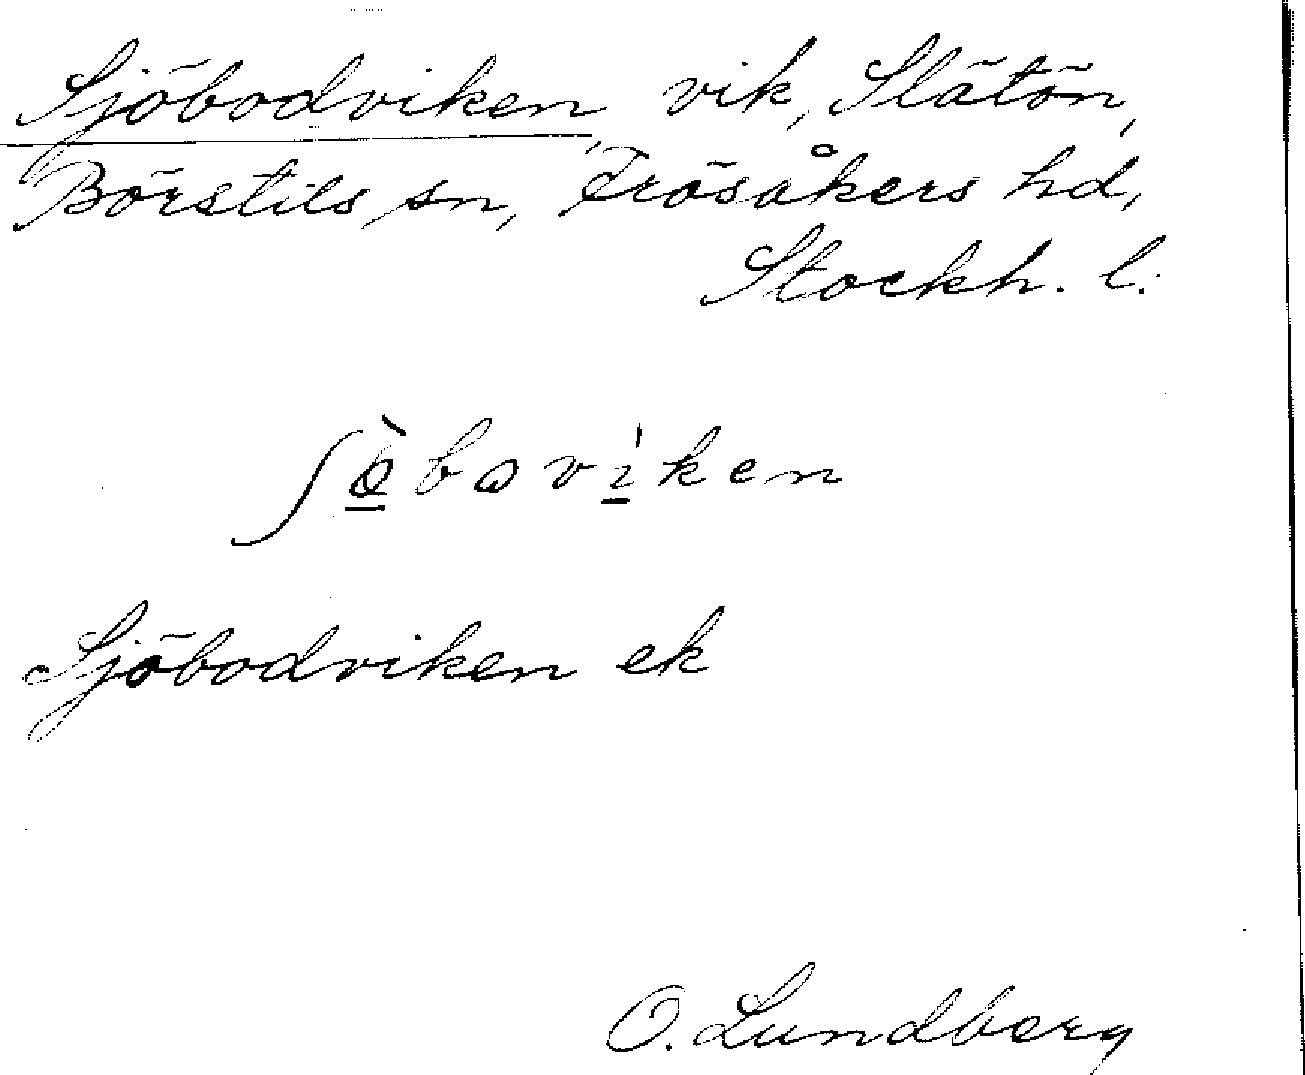 Sjöbodviken, vik, Slätön,
Börstils sn, Frösåkers hd,
Stockh. l.
ʃø̀bωvi̍ken
Sjöbodviken ek
O. Lundberg